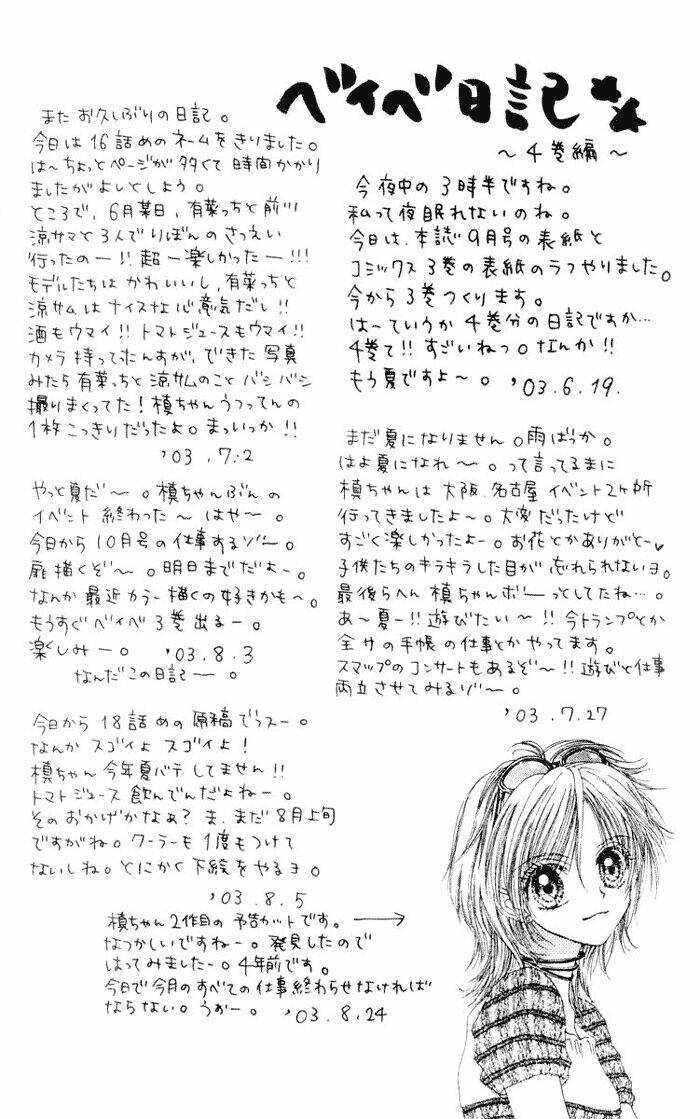 ベイベ日記
～4巻編～
今夜中の3時半ですね。
私って夜眠れないのね。
今日は、本誌9月号の表紙と
コミックス3巻の表紙のラフやりました。
今から3巻つくります。
は～ていうか4巻分の日記ですか…
4巻て!!すごいねっ。なんか!!
もう夏ですよ～。'03.6.19.
まだ夏になりません。雨ばっか。
はよ夏になれ～。って言ってるまに
槙ちゃんは大阪、名古屋イベント2ヶ所
行ってきましたよ～。大変だったけど
すごく楽しかったよー。お花とかありがとー
子供たちのキラキラした目が忘れられないヨ。
最後らへん槙ちゃんボーっとしてたね…。
あ～夏ー!!遊びたい～!!今トランプとか
全サの手帳の仕事とかやってます。
スマップのコンサートもあるぞ～!!遊びと仕事
両立させてみるゾ～。
'03.7.27
またお久しぶりの日記。
今日は16話めのネームをきりました。
は～ちょっとページが多くて時間かかり
ましたがよしとしよう。
ところで、6月某日、有菜っちと前川
涼サマと3人でりぼんのさつえい
行ったのー!!超ー楽しかったー!!!
モデルたちはかわいいし、有菜っちと
涼サムはナイスな心意気だし!!
酒もウマイ!!トマトジュースもウマイ!!
カメラ持って来んすが、できた写真
みたら有菜っちと涼サムのことバシバシ
撮りまくってた!槙ちゃんうつってんの
1枚こっきりだったよ。まっいっか!!
'03.7.2
やっと夏だ～。槙ちゃんぶんの
イベント終わった～はや～。
今日から10月号の仕事するゾ～。
扉描くぞ～。明日までだよー。
なんか最近カラー描くの好きかも～。
もうすぐベイベ3巻出るー。
楽しみー。'03.8.3
なんだこの日記ー。
今日から18話めの原稿でっスー。
なんかスゴイよスゴイよ!
槙ちゃん今年夏バテしてません!!
トマトジュース飲んでんだよねー。
そのおかげかなぁ?ま、まだ8月上旬
ですがね。クーラーも1度もつけて
ないしね。とにかく下絵をやるヨ。
'03.8.5
槙ちゃん2作目の予告カットです。
なつかしいですねー。発見したので
はってみましたー。4年前です。
今日で今月のすべての仕事終わらせなければ
ならない。うぉー。'03.8.24